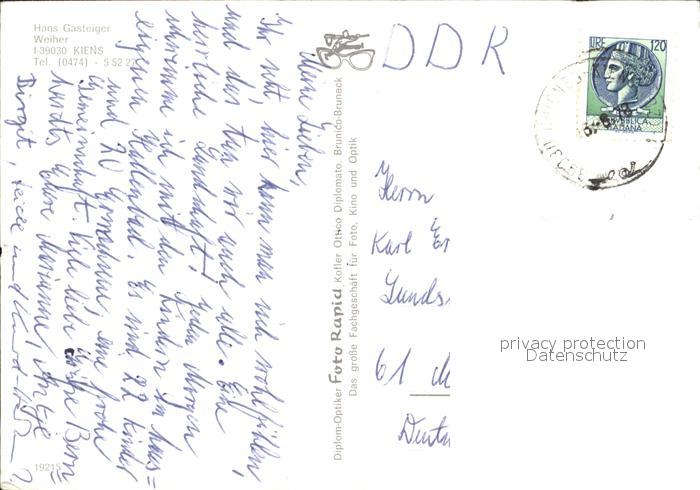 Hans Gasteiger
Weiher
I-39030 KIENS
Tel. (0474) - 5 52 27
Meine Lieben,
Ihr seht, hier kann man sich wohlfühlen,
und das tun wir auch alle. Eine
herrliche Landschaft! Jeden Morgen
schwimme ich mit den Kindern im haus=
eigenen Hallenbad. Es sind 22 Kinder
und 20 Erwachsene, eine frohe
Gemeinschaft. Viele liebe Grüße
Eure Marianne, Antje
Birgit, und
19215
Diplom-Optiker Foto Rapid Kofler Ottico Diplomato, Brunico-Bruneck
Das große Fachgeschäft für Foto, Kino und Optik
DDR
LIRE 120
REPUBBLICA
ITALIANA
Herrn
Karl
61
privacy protection
Datenschutz